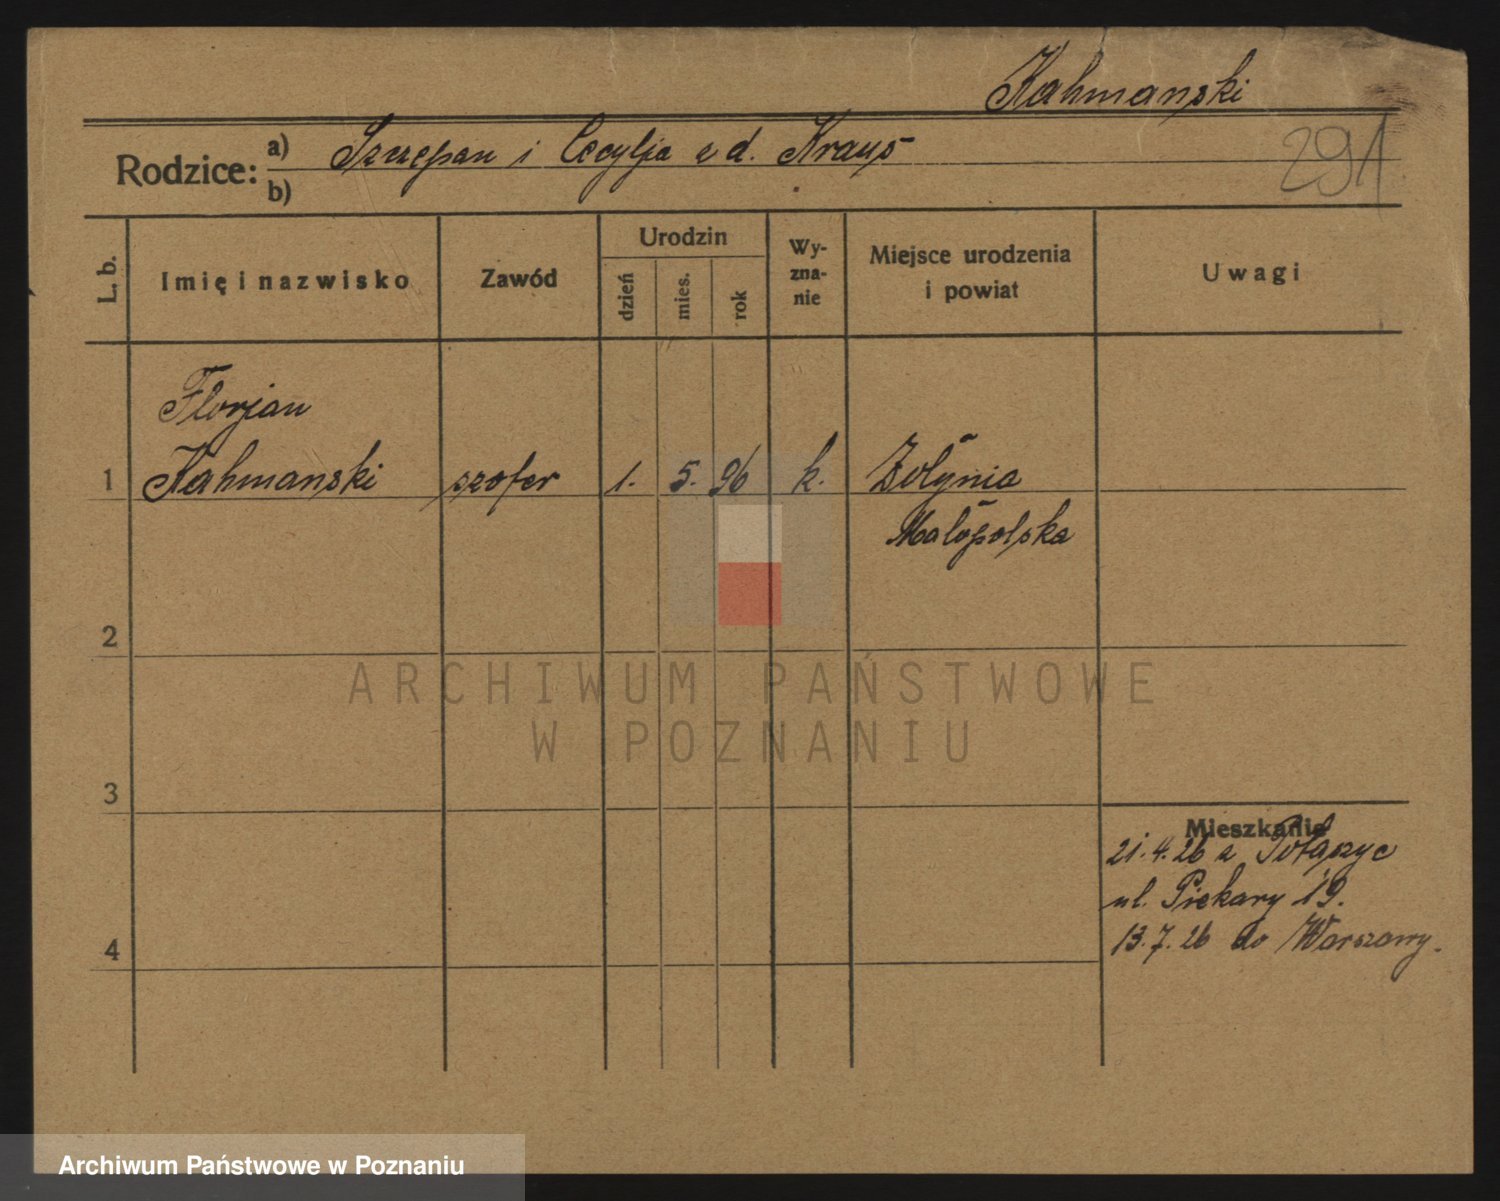 Kahmanski
291
Rodzice: a) Szczepan i Cecylja z d. Kraus
b)
L. b. Imię i nazwisko Zawód Urodzin dzień mies. rok Wyznanie Miejsce urodzenia i powiat Uwagi
Florjan
1 Kahmanski szofer 1. 5. 96 k. Żołynia
Małopolska
2
ARCHIWUM PAŃSTWOWE
W POZNANIU
3
Mieszkanie
21.4.26 z
ul. Piekary 19.
4 13.7.26 do Warszawy.
Archiwum Państwowe w Poznaniu